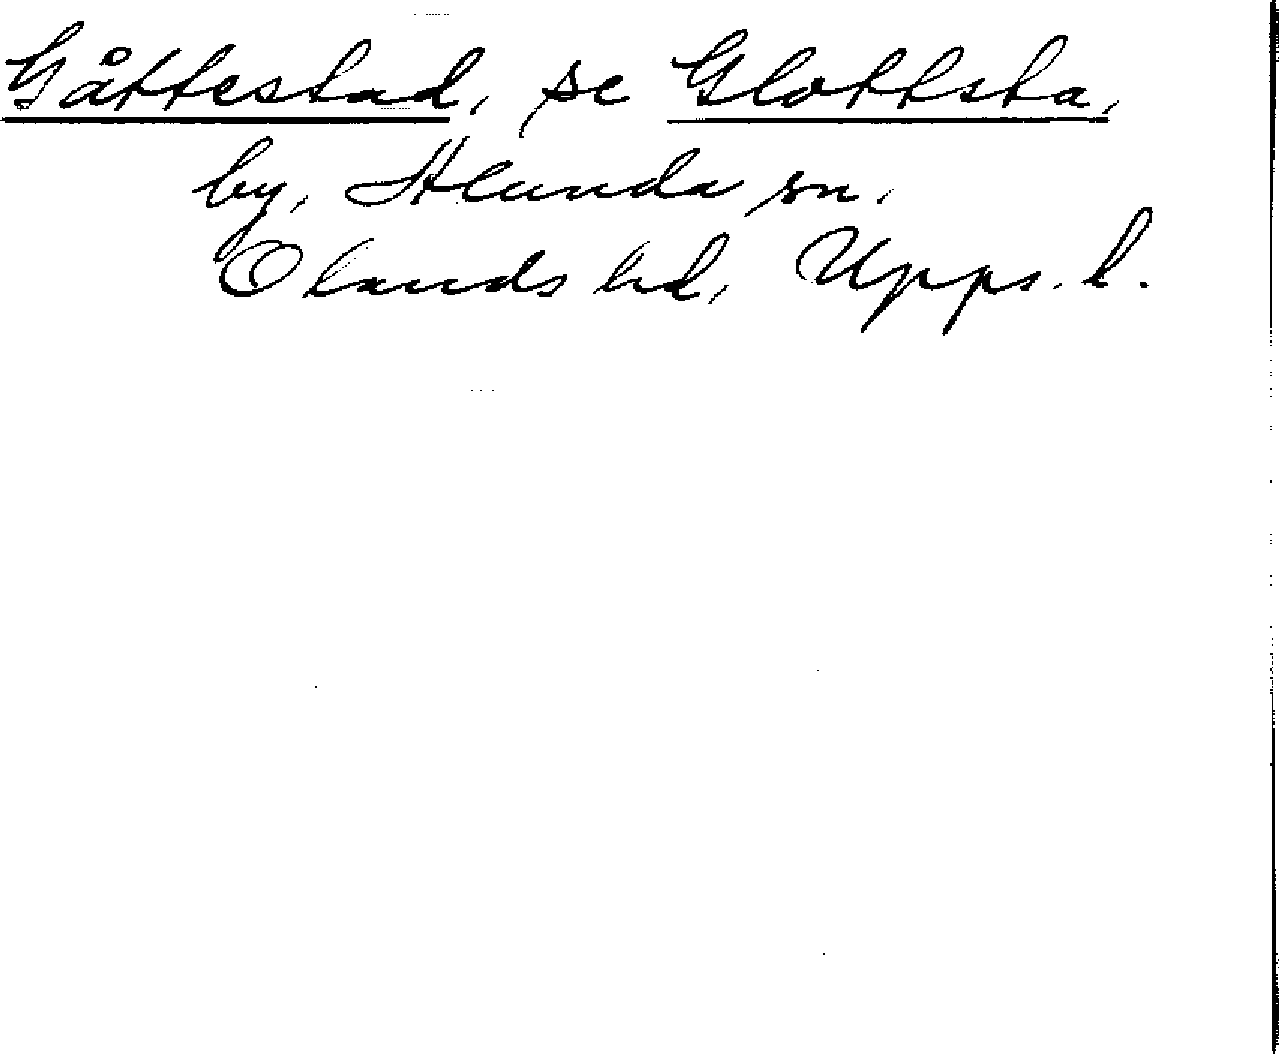 Gåttestad, se Glottsta,
by, Alunda sn.
Olands hd, Upps. l.